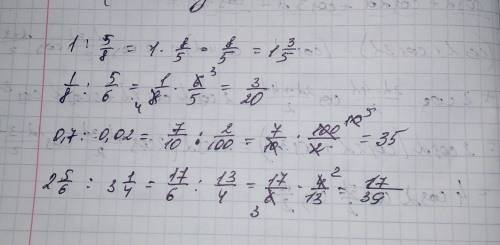 1 : 5/8 = 1 · 8/5 = 8/5 = 1 3/5
1/8 : 5/6 = 4 1/8 · 6/5 3 = 3/20
0,7 : 0,02 = 7/10 : 2/100 = 7/10 · 100/2 10 5 = 35
2 5/6 : 3 1/4 = 17/6 : 13/4 = 17/6 3 · 4/13 2 = 17/39